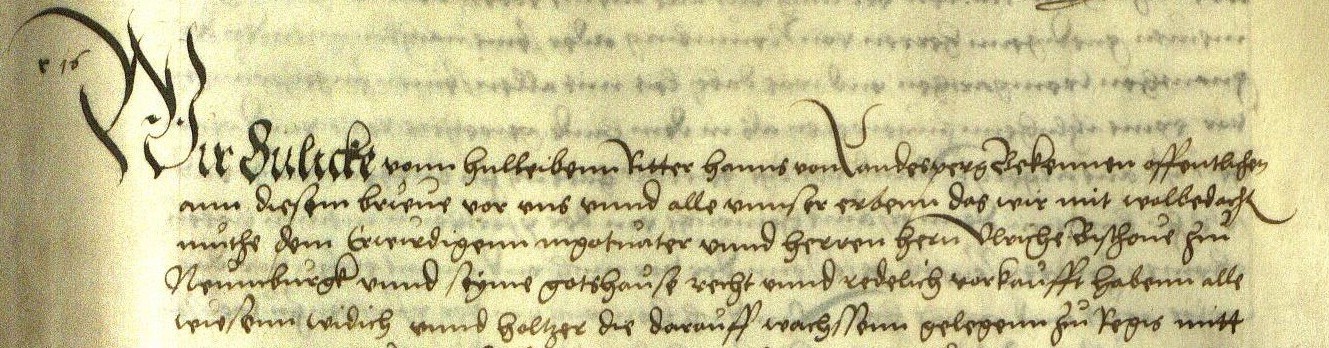 r 16
Wir Gulicke vonn hulleibenn Ritter hanns von Landesperg Bekennen offentlichen
ann diesem brieue vor vns vnnd alle vnnser erbenn das wir mit wolbedacht
muthe dem Erwirdigenn ingotuater vnnd herren hern Vlriche Bischoue zu
Neumburgk vnnd seyme gotshause recht vnnd redelich vorkaufft habenn alle
wiesenn widich vnnd holtzer die darauff wachssenn gelegenn zu Regis mitt